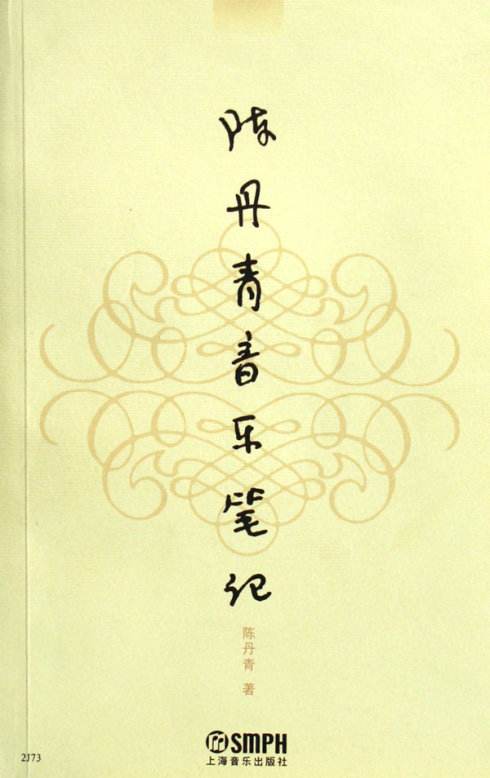 陈丹青音乐笔记
陈丹青 著
SMPH
上海音乐出版社
2J73